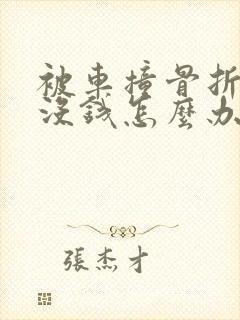 被車撞骨折
沒錢怎麼办
張杰才